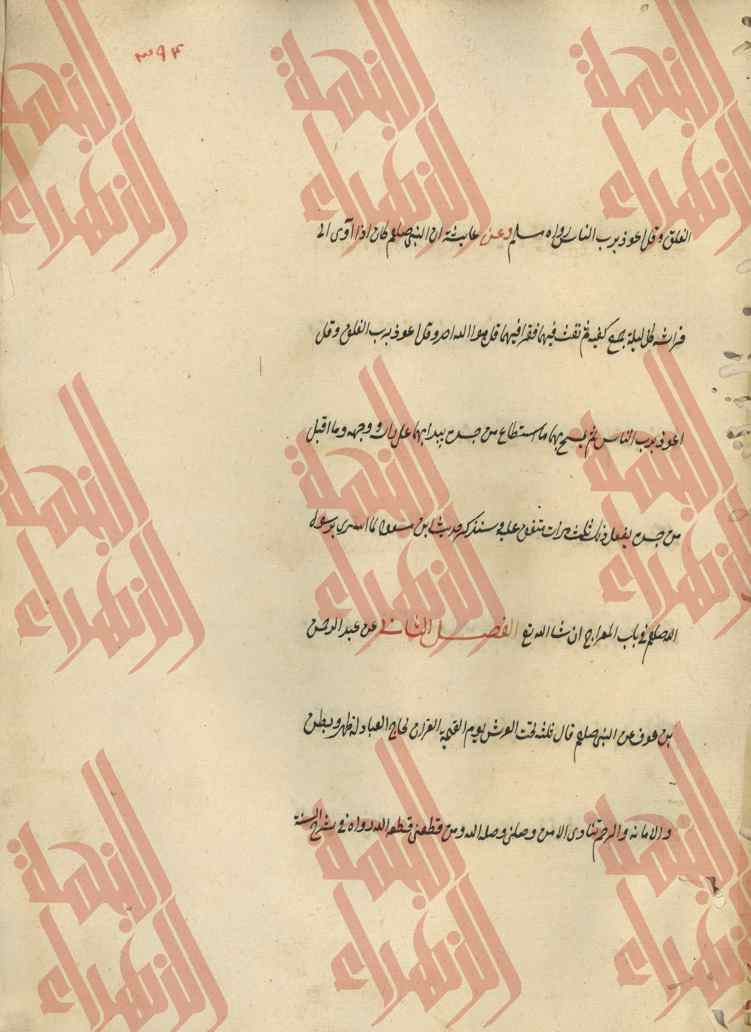 ٣٩٤
الفلق وقل اعوذ برب الناس رواه مسلم وعن عايشة ان النبي صلعم كان اذا آوى الى
فراشه كل ليلة جمع كفيه ثم نفث فيهما فقرأ فيهما قل هو الله احد وقل اعوذ برب الفلق وقل
اعوذ برب الناس ثم يمسح بهما ما استطاع من جسده يبدا بهما على راسه ووجهه وما اقبل
من جسده يفعل ذلك ثلث مرات متفق عليه وسنذكر حديث ابن مسعود لما اسري برسول
الله صلعم في باب المعراج ان شا الله تع الفصل الثاني عن عبد الرحمن
بن عوف عن النبي صلعم قال ثلثة تحت العرش يوم القيمة القران يحاج العباد له ظهر وبطن
والامانة والرحم تنادى الا من وصلنى وصله الله ومن قطعنى قطعه الله رواه في شرح السنة